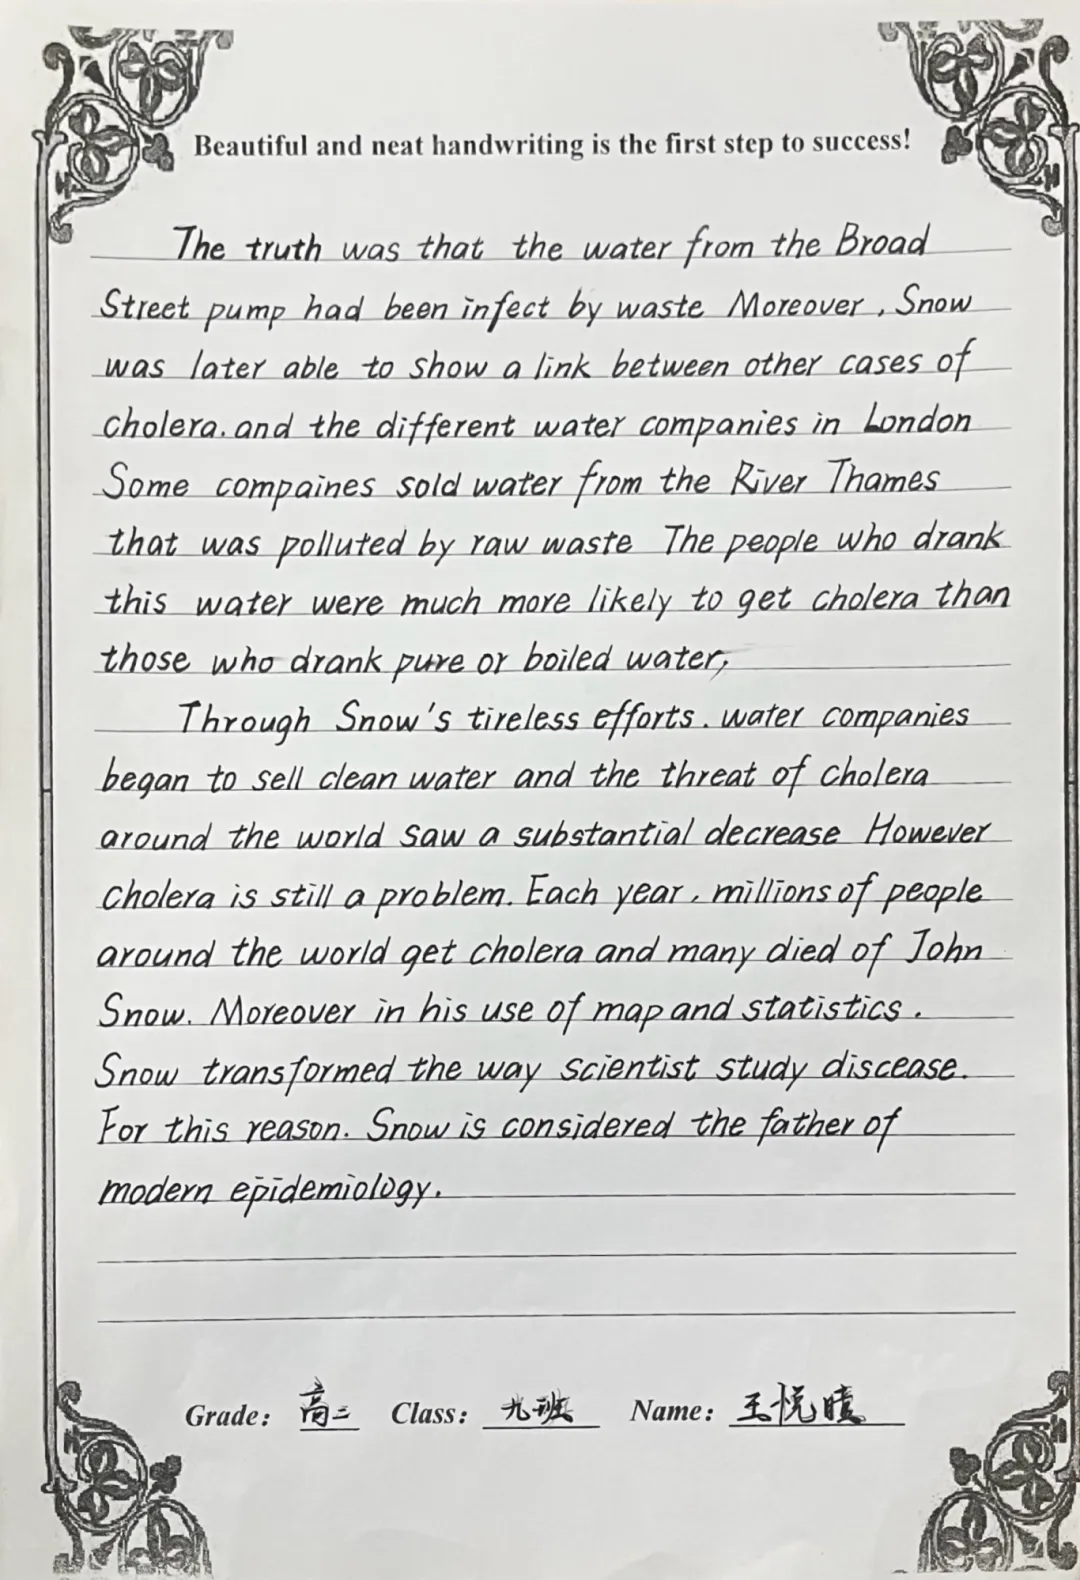 Beautiful and neat handwriting is the first step to success!
The truth was that the water from the Broad
Street pump had been infect by waste Moreover, Snow
was later able to show a link between other cases of
cholera. and the different water companies in London
Some compaines sold water from the River Thames
that was polluted by raw waste The people who drank
this water were much more likely to get cholera than
those who drank pure or boiled water,
Through Snow's tireless efforts. water companies
began to sell clean water and the threat of cholera
around the world saw a substantial decrease However
cholera is still a problem. Each year, millions of people
around the world get cholera and many died of John
Snow. Moreover in his use of map and statistics.
Snow transformed the way scientist study discease.
For this reason. Snow is considered the father of
modern epidemiology.
Grade: 高二 Class: 九班 Name: 王悦